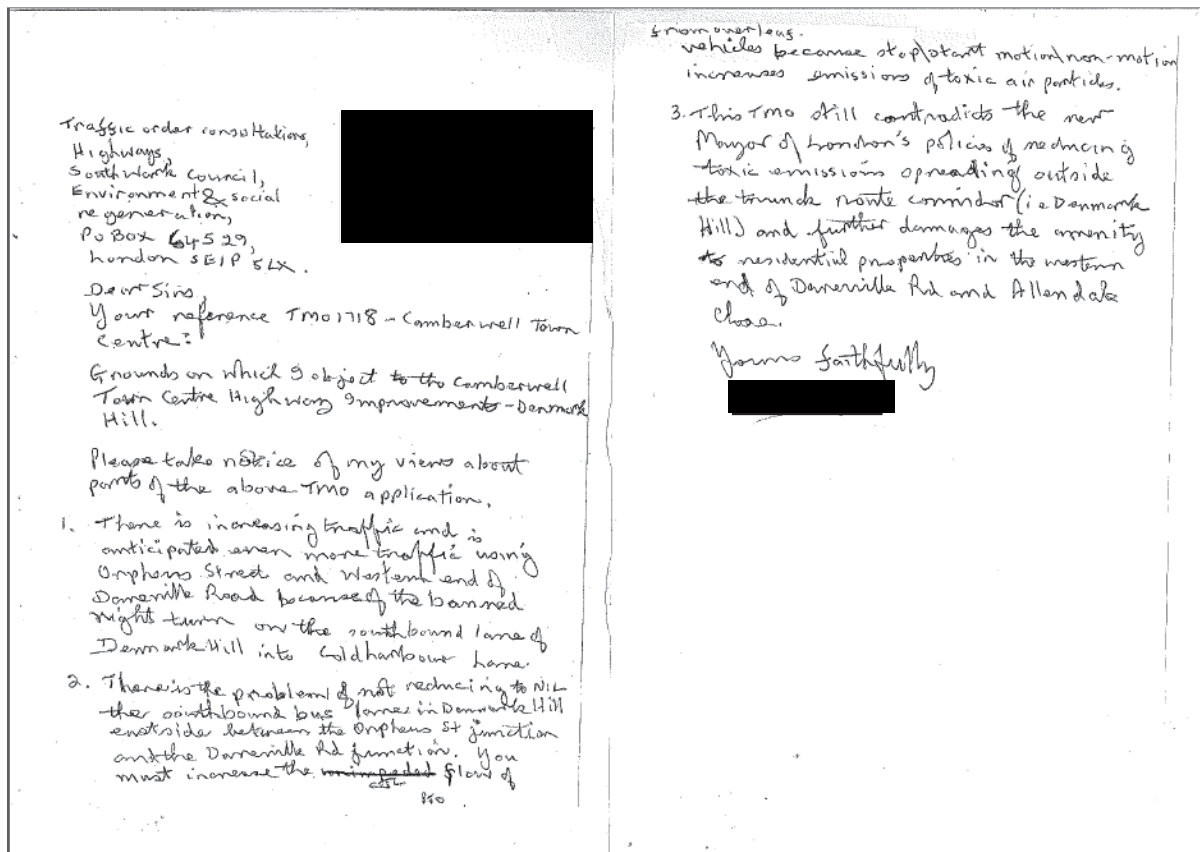 Traffic order consultations,
Highways,
Southwark Council,
Environment & social
regeneration,
PO Box 64529,
London SE1P 5LX.
Dear Sirs,
Your reference TMO1718 - Camberwell Town
Centre:
Grounds on which I object to the Camberwell
Town Centre Highway Improvements - Denmark
Hill.
Please take notice of my views about
parts of the above TMO application.
1. There is increasing traffic and is
anticipated even more traffic using
Orpheus Street and Western end of
Daneville Road because of the banned
right turn on the southbound lane of
Denmark Hill into Coldharbour Lane.
2. There is the problem of not reducing to NIL
the southbound bus lanes in Denmark Hill
eastside between the Orpheus St junction
and the Daneville Rd junction. You
must increase the unimpeded flow of
PTO
from overleaf.
vehicles because stop\start motion\non-motion
increases emissions of toxic air particles.
3. This TMO still contradicts the new
Mayor of London's policies of reducing
toxic emissions spreading outside
the trunck route corridor (i.e Denmark
Hill) and further damages the amenity
to residential properties in the western
end of Daneville Rd and Allendale
Close.
Yours faithfully